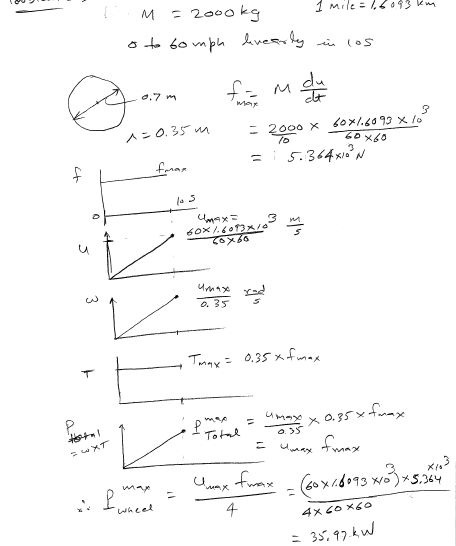 M = 2000 kg
1 mile = 1.6093 km
0 to 60 mph linearly in 10 s
0.7 m
r = 0.35 m
f max = M du/dt
= 2000/10 × 60×1.6093×10^3 / 60×60
= 5.364×10^3 N
f
f max
0
10 s
u
u max = 60×1.6093×10^3 / 60×60 m/s
ω
u max / 0.35 rad/s
T
T max = 0.35 × f max
P total = ω×T
P max Total = u max / 0.35 × 0.35 × f max
= u max f max
∴ P max wheel = u max f max / 4 = (60×1.6093×10^3) × 5.364 ×10^3 / 4×60×60
= 35.97 kW